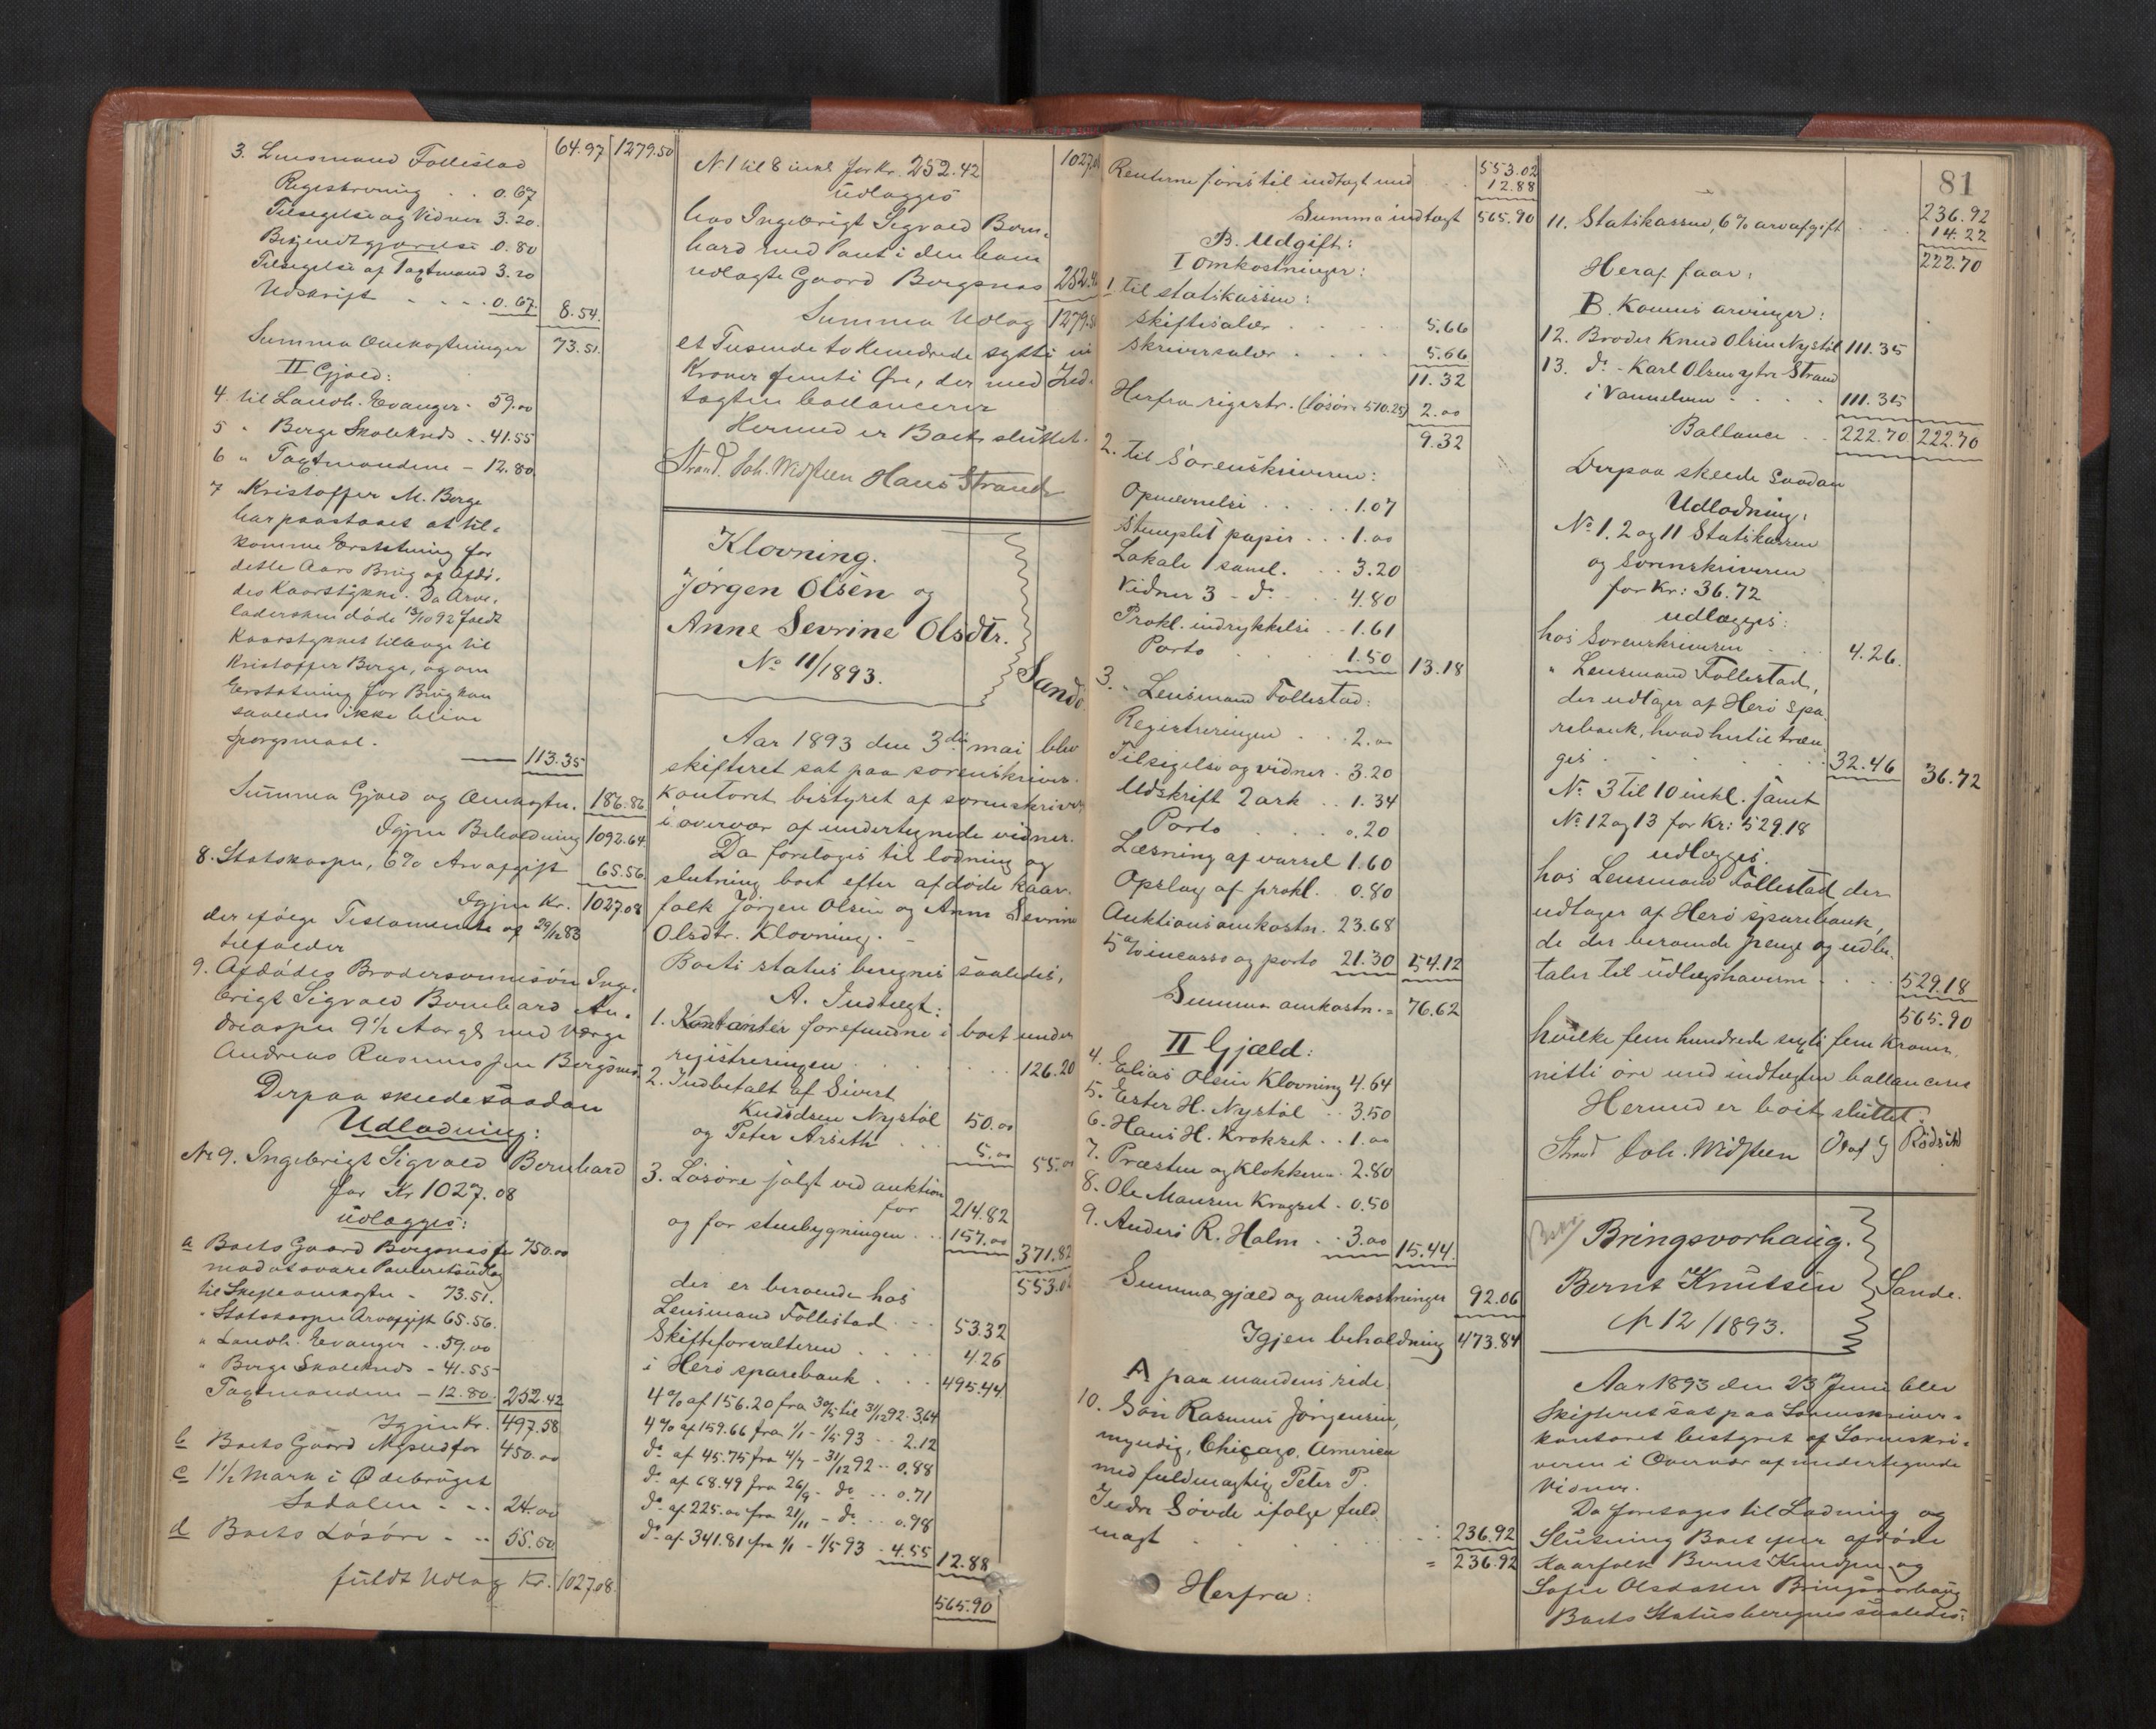 3. Lensmand Follestad 64.97 1279.50
Registrering . . 0.67
Tilsigelse og Vidner 3.20.
Bekjendtgjørelse 0.80
Tilsigelse af Tagtmænd 3.20
Udskrift . . . . 0.67. 8.54.
Summa Omkostninger 73.51.
II Gjæld:
4. til Landh. Evanger - 59.00
5 " Berge Skolekreds . . 41.55
6 " Tagtmændene - 12.80
7 Kristoffer M. Berge
har paastaaet at til-
komme Erstatning for
dette Aars Brug af Afdø-
des Kaarstykke. Da Arve-
ladersken døde 13/10 92 faldt
Kaarstykket tilbage til
Kristoffer Berge, og om
Erstatning for Brug kan
saaledes ikke blive
spørgsmaal.
113.35
Summa Gjæld og Omkostn. 186.86
Igjen Beholdning 1092.64
8. Statskassen, 6% Arveafgift 65.56.
Igjen Kr. 1027.08
der ifølge Testamente af 29/12 83
tilfalder
9. Afdødes Brodersønnesøn Inge-
brigt Sigvald Bernhard An-
dreassen 9 1/2 Aar gl. med Værge
Andreas Rasmussen Bergsnes.
Derpaa skede saadan
Udlodning:
No 9. Ingebrigt Sigvald Bernhard
for Kr 1027.08
udlægges:
a Boets Gaard Bergsnes for 750.00
mod at svare Panteretsudlæg
til Skifteomkostn. - 73.51.
" Statskassen Arveafgift 65.56.
" Landh. Evanger . . 59.00
" Berge Skolekreds - 41.55
Tagtmændene - 12.80. 252.42
Igjen Kr. 497.58
b Boets Gaard Myrud for 450.00
c 1 1/2 Mark i Ødebruget
Sødalen . . . 24.00
d Boets Løsøre - . . 55.50
fuldt Udlæg Kr. 1027.08.
N 1 til 8 inkl for Kr. 252.42 1027.08
udlægges
hos Ingebrigt Sigvald Bern-
hard med Pant i den ham
udlagte Gaard Bergsnes 252.42
Summa Udlæg 1279.50
et Tusende to Hundrede sytti ni
Kroner femti Øre, der med Ind-
tægten ballancerer
Hermed er Boets sluttet.
Strand. Joh. Widsteen Hans Strand
Klovning.
Jørgen Olsen og
Anne Sevrine Olsdtr.
No 11/1893.
Sandø.
Aar 1893 den 3die mai blev
skifteret sat paa sorenskriver-
kontoret bestyret af sorenskriver
i overvær af undertegnede vidner.
Da foretoges til lodning og
slutning boet efter afdøde kaar-
folk Jørgen Olsen og Anne Sevrine
Olsdtr. Klovning. -
Boets status beregnes saaledes,
A. Indtægt:
1. Kontanter forefundne i boet under
registreringen . . . . 126.20
2. Indbetalt af Sivert
Knudsen Nystøl 50.00
og Peter Arseth . . . 5.00 55.00
3. Løsøre solgt ved auktion
for 214.82
og for stuebygningen . . 157.00 371.82
553.02
der er beroende hos
Lensmand Follestad . . 53.32
Skifteforvalteren . . . . 4.26
i Herø sparebank . . . 495.44
4% af 156.20 fra 30/5 til 31/12 92. 3.64
4% af 159.66 fra 1/1 - 1/5 93 . . 2.12
do af 45.75 fra 4/7 - 31/12 92 . . 0.88
do af 68.49 fra 26/9 - do . . 0.71
do af 225.00 fra 21/11 - do . . 0.98
do af 341.81 fra 1/1 - 1/5 93 . 4.55 12.88
565.90
Renterne føres til indtægt med 553.02
12.88
Summa indtægt 565.90
B. Udgift:
I Omkostninger:
1. Til statskassen:
Skiftesalær . . . . 5.66
Skriversalær . . . . 5.66
11.32
Herfra registr. (løsøre 510.25) 2.00
9.32
2. Til Sorenskriveren:
Opnævnelse . . . . . 1.07
Stemplet papir . . . 1.00
Lokale 1 saml. . . 3.20
Vidner 3 - do . . . 4.80
Prokl. indrykkelse . . 1.61
Porto . . . . 1.50 13.18
3. " Lensmand Follestad:
Registreringen . . . 2.00
Tilsigelse og vidner . 3.20
Udskrift 2 ark . . 1.34
Porto . . . . 0.20
Læsning af varsel 1.60
Opslag af prokl. 0.80
Auktionsomkostn. 23.68
5% incasso og porto 21.30 54.12
Summa omkostn. = 76.62
II Gjæld:
4. Elias Olsen Klovning 4.64
5. Ester H. Nystøl . . 3.50
6. Hans H. Krokset . . 1.00
7. Præsten og Klokkeren . 2.80
8. Ole Mansen Kragset . 0.50
9. Anders R. Holm . . 3.00 15.44.
Summa gjæld og omkostninger 92.06
Igjen beholdning 473.84
A paa mandens side.
10. Søn Rasmus Jørgensen,
myndig, Chicago, America
med fuldmægtig Peter P.
Indre Søvde ifølge fuld
magt . . . . . 236.92
= 236.92
Herfra:
81
236.92
11. Statskassen, 6% arveafgift . . 14.22
222.70
Heraf faar:
B. Konens arvinger:
12. Broder Knud Olsen Nystøl 111.35
13. do - Karl Olsen ytre Strand
i Vannelven . . . . 111.35
Ballance . . 222.70 222.70
Derpaa skede saadan
Udlodning:
No 1. 2 og 11 Statskassen
og Sorenskriveren
for Kr: 36.72
udlægges:
hos Sorenskriveren . . . 4.26.
" Lensmand Follestad,
der udtager af Herø spa-
rebank, hvad hertil træn-
ges . . . . . . 32.46 36.72
No 3 til 10 inkl. samt
No 12 og 13 for Kr: 529.18
udlægges.
hos Lensmand Follestad der
udtager af Herø sparebank,
de der beroende penge og udbe-
taler til udlægshaverne . . . 529.18
565.90
hvilke fem hundrede sexti fem Kroner
nitti øre med indtægten ballancerer
Hermed er boet sluttet.
Strand Joh. Widsteen Olaf G Rødseth
Bringsvorhaug.
Bernt Knutsen
N 12/1893.
Sande.
Aar 1893 den 23 Juni blev
Skifteret sat paa Sorenskriver-
kontoret bestyret af Sorenskri-
veren i Overvær af undertegnede
Vidner.
Da foretoges til Lodning og
Slutning Boet efter afdøde
Kaarfolk Bernt Knudsen og
Sofie Olsdatter Bringsvorhaug
Boets Status beregnes saaledes: